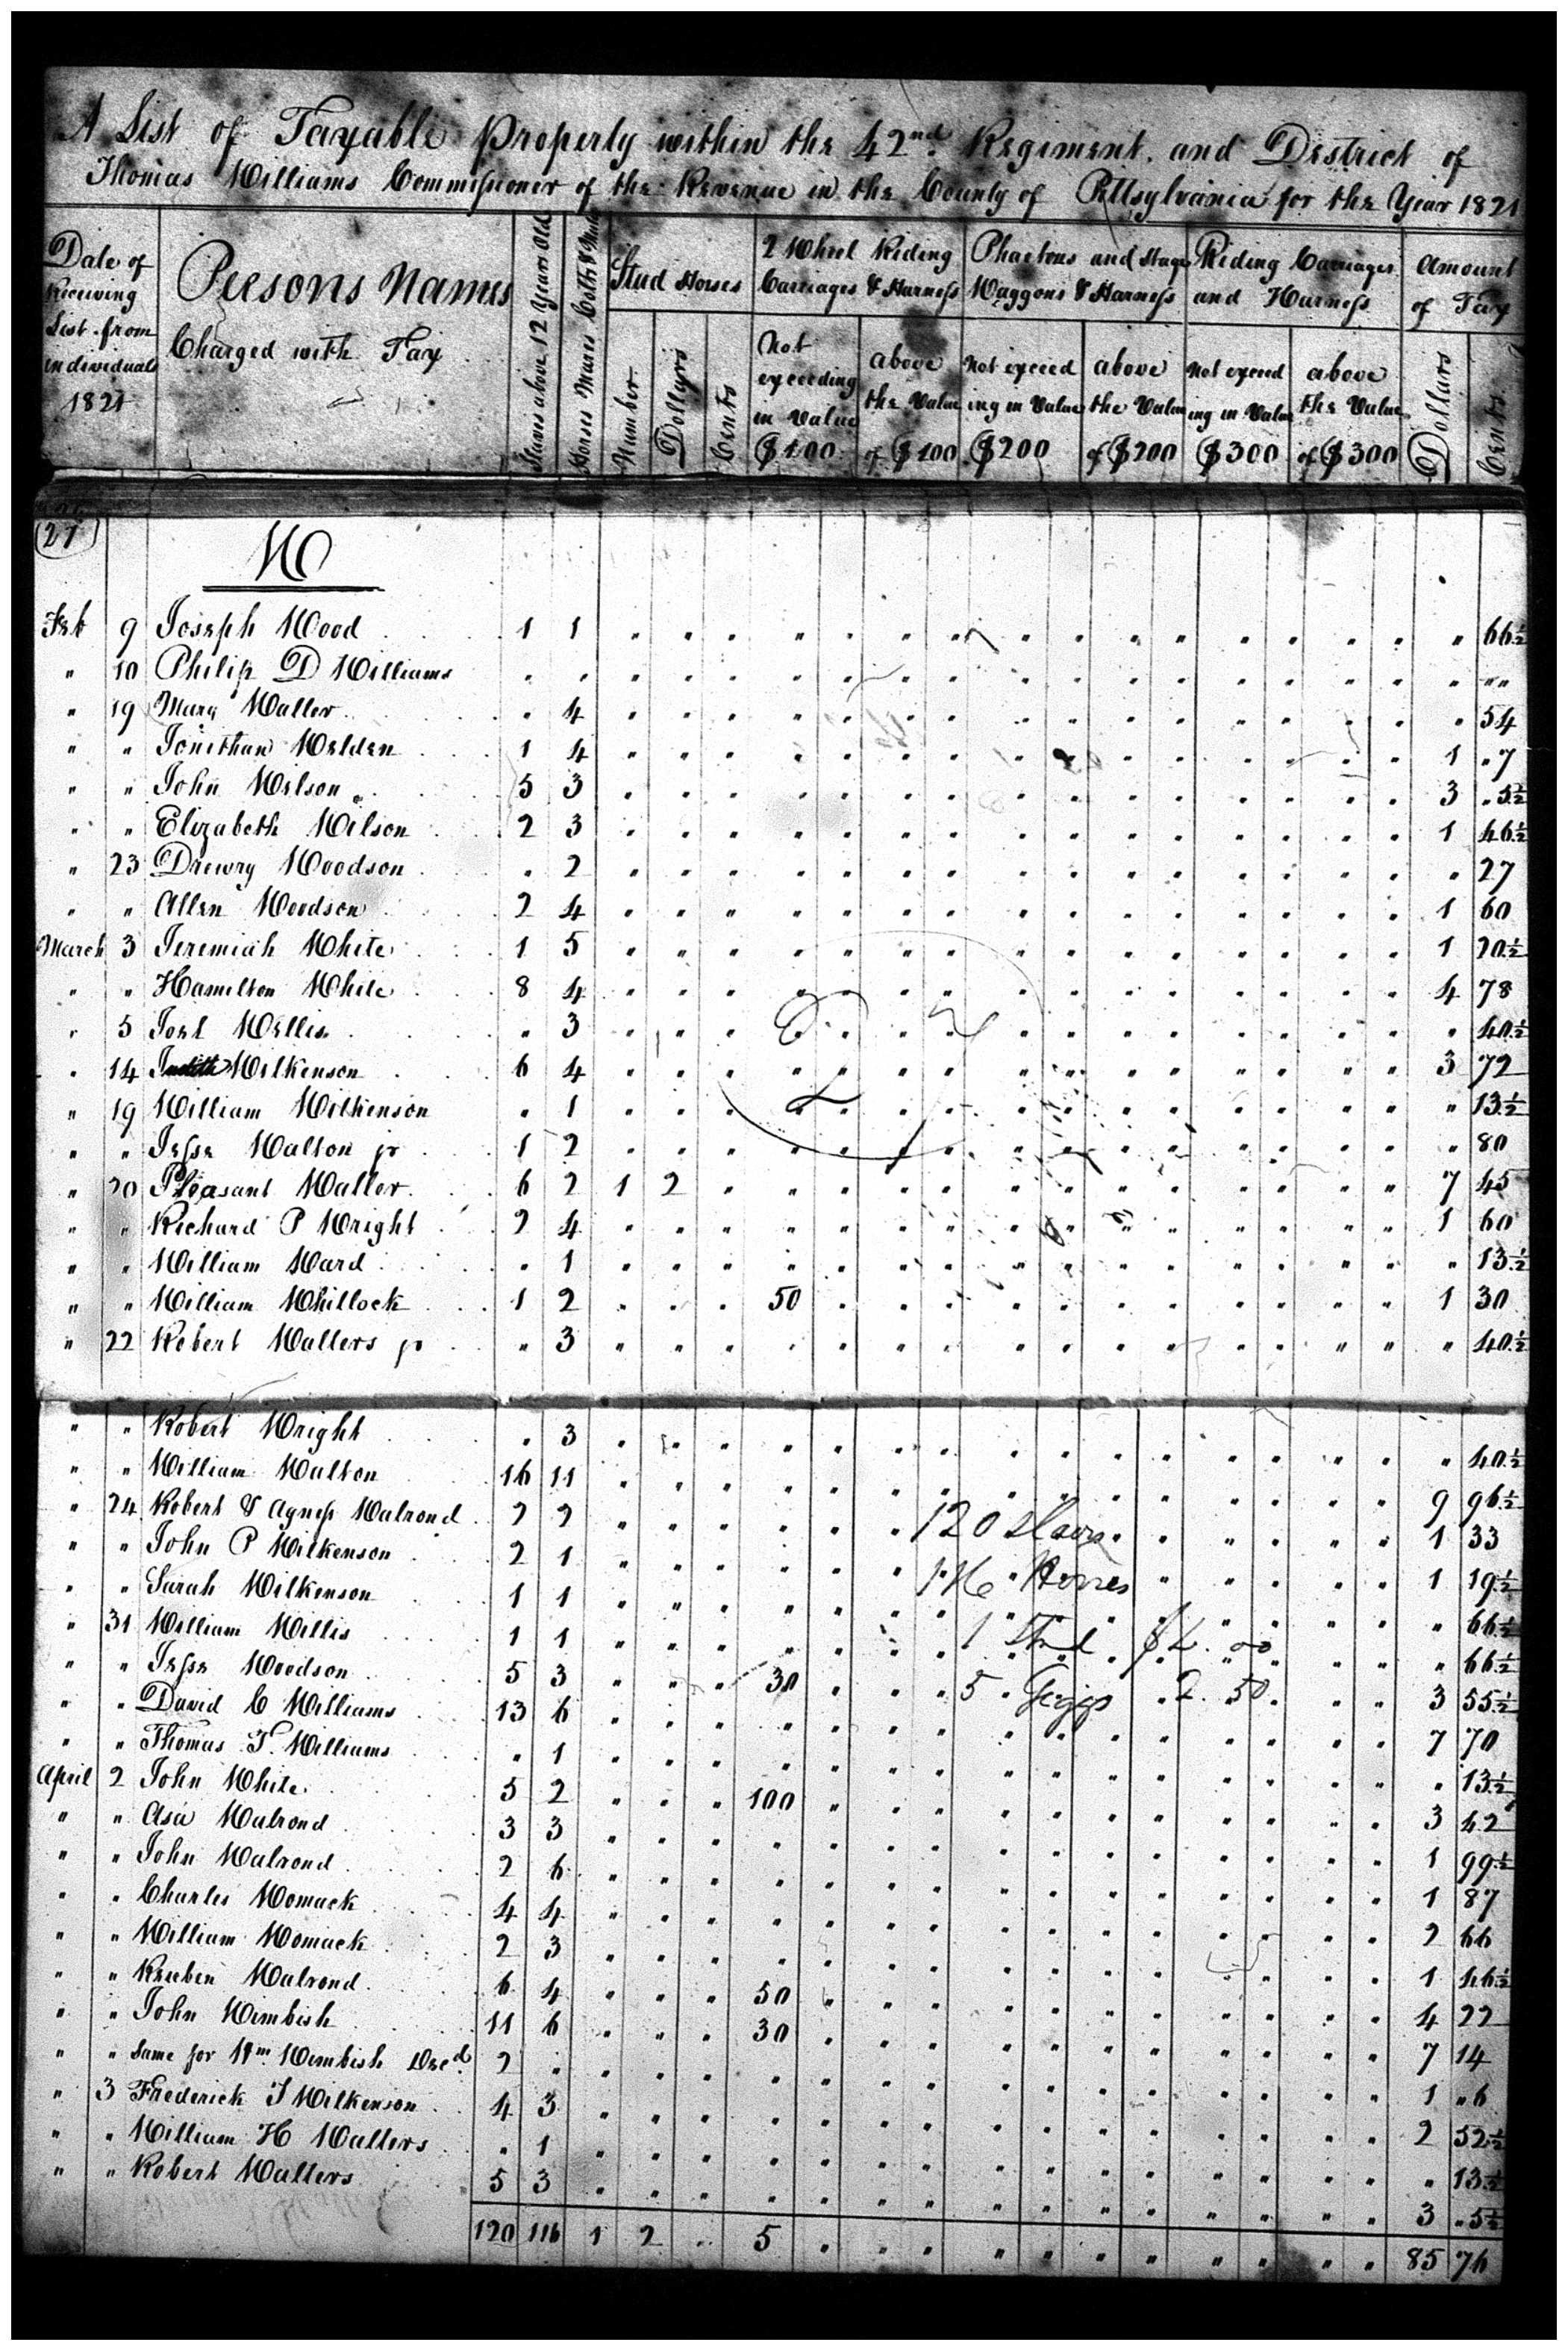 A List of Taxable Property within the 42nd Regiment. and District of
Thomas Williams Commissioner of the Revenue in the County of Pittsylvania for the Year 1821
Date of Receiving List from individuals 1821
Persons Names Charged with Tax
Slaves above 12 Years Old
Horses Mares Colts & Mules
Stud Horses
Number
Dollars
Cents
2 Wheel Riding Carriages & Harness
Not exceeding in Value $100
above the Value of $100
Phaetons and Stage Waggons & Harness
Not exceeding in Value $200
above the Value of $200
Riding Carriages and Harness
Not exceeding in Value $300
above the Value of $300
Amount of Tax
Dollars
Cents
27
W
Feb 9 Joseph Wood 1 1 " 66½
" 10 Philip D Williams " " " ""
" 19 Mary Waller " 4 " 54
" " Jonithan Welden 1 4 1 "7
" " John Wilson 5 3 3 "5½
" " Elizabeth Wilson 2 3 1 46½
" 23 Drewry Woodson " 2 " 27
" " Allen Woodson 2 4 1 60
March 3 Jeremiah White 1 5 1 20½
" " Hamilton White 8 4 4 78
" 5 Joel Willis " 3 " 40½
" 14 Judith Wilkenson 6 4 3 72
" 19 William Wilkenson " 1 " 13½
" " Jesse Walton jr 1 2 " 80
" 20 Pleasant Waller 6 2 1 2 7 45
" " Richard P Wright 2 4 1 60
" " William Ward " 1 " 13½
" " William Whitlock 1 2 50 1 30
" 22 Robert Walters jr " 3 " 40½
" " Robert Wright " 3 " 40½
" " William Walton 16 11 9 96½
" 24 Robert & Agness Walrond 2 2 1 33
" " John P Wilkenson 2 1 1 19½
" " Sarah Wilkenson 1 1 " 66½
" 31 William Willis 1 1 " 66½
" " Jesse Woodson 5 3 30 3 55½
" " David C Williams 13 6 7 70
" " Thomas T. Williams " 1 " 13½
April 2 John White 5 2 100 3 42
" " Asa Walrond 3 3 1 99½
" " John Walrond 2 6 1 87
" " Charles Womack 4 4 2 66
" " William Womack 2 3 1 46½
" " Reuben Walrond 6 4 50 4 22
" " John Wimbish 11 6 30 7 14
" " Same for Wm. Wimbish Decd 2 " 1 "6
" 3 Frederick J Wilkenson 4 3 2 52½
" " William H Walters " 1 " 13½
" " Robert Walters 5 3 3 "5½
120 116 1 2 " 5 85 76
120 Slaves
116 Horses
1 Stud $2.00
5 Giggs 2.50